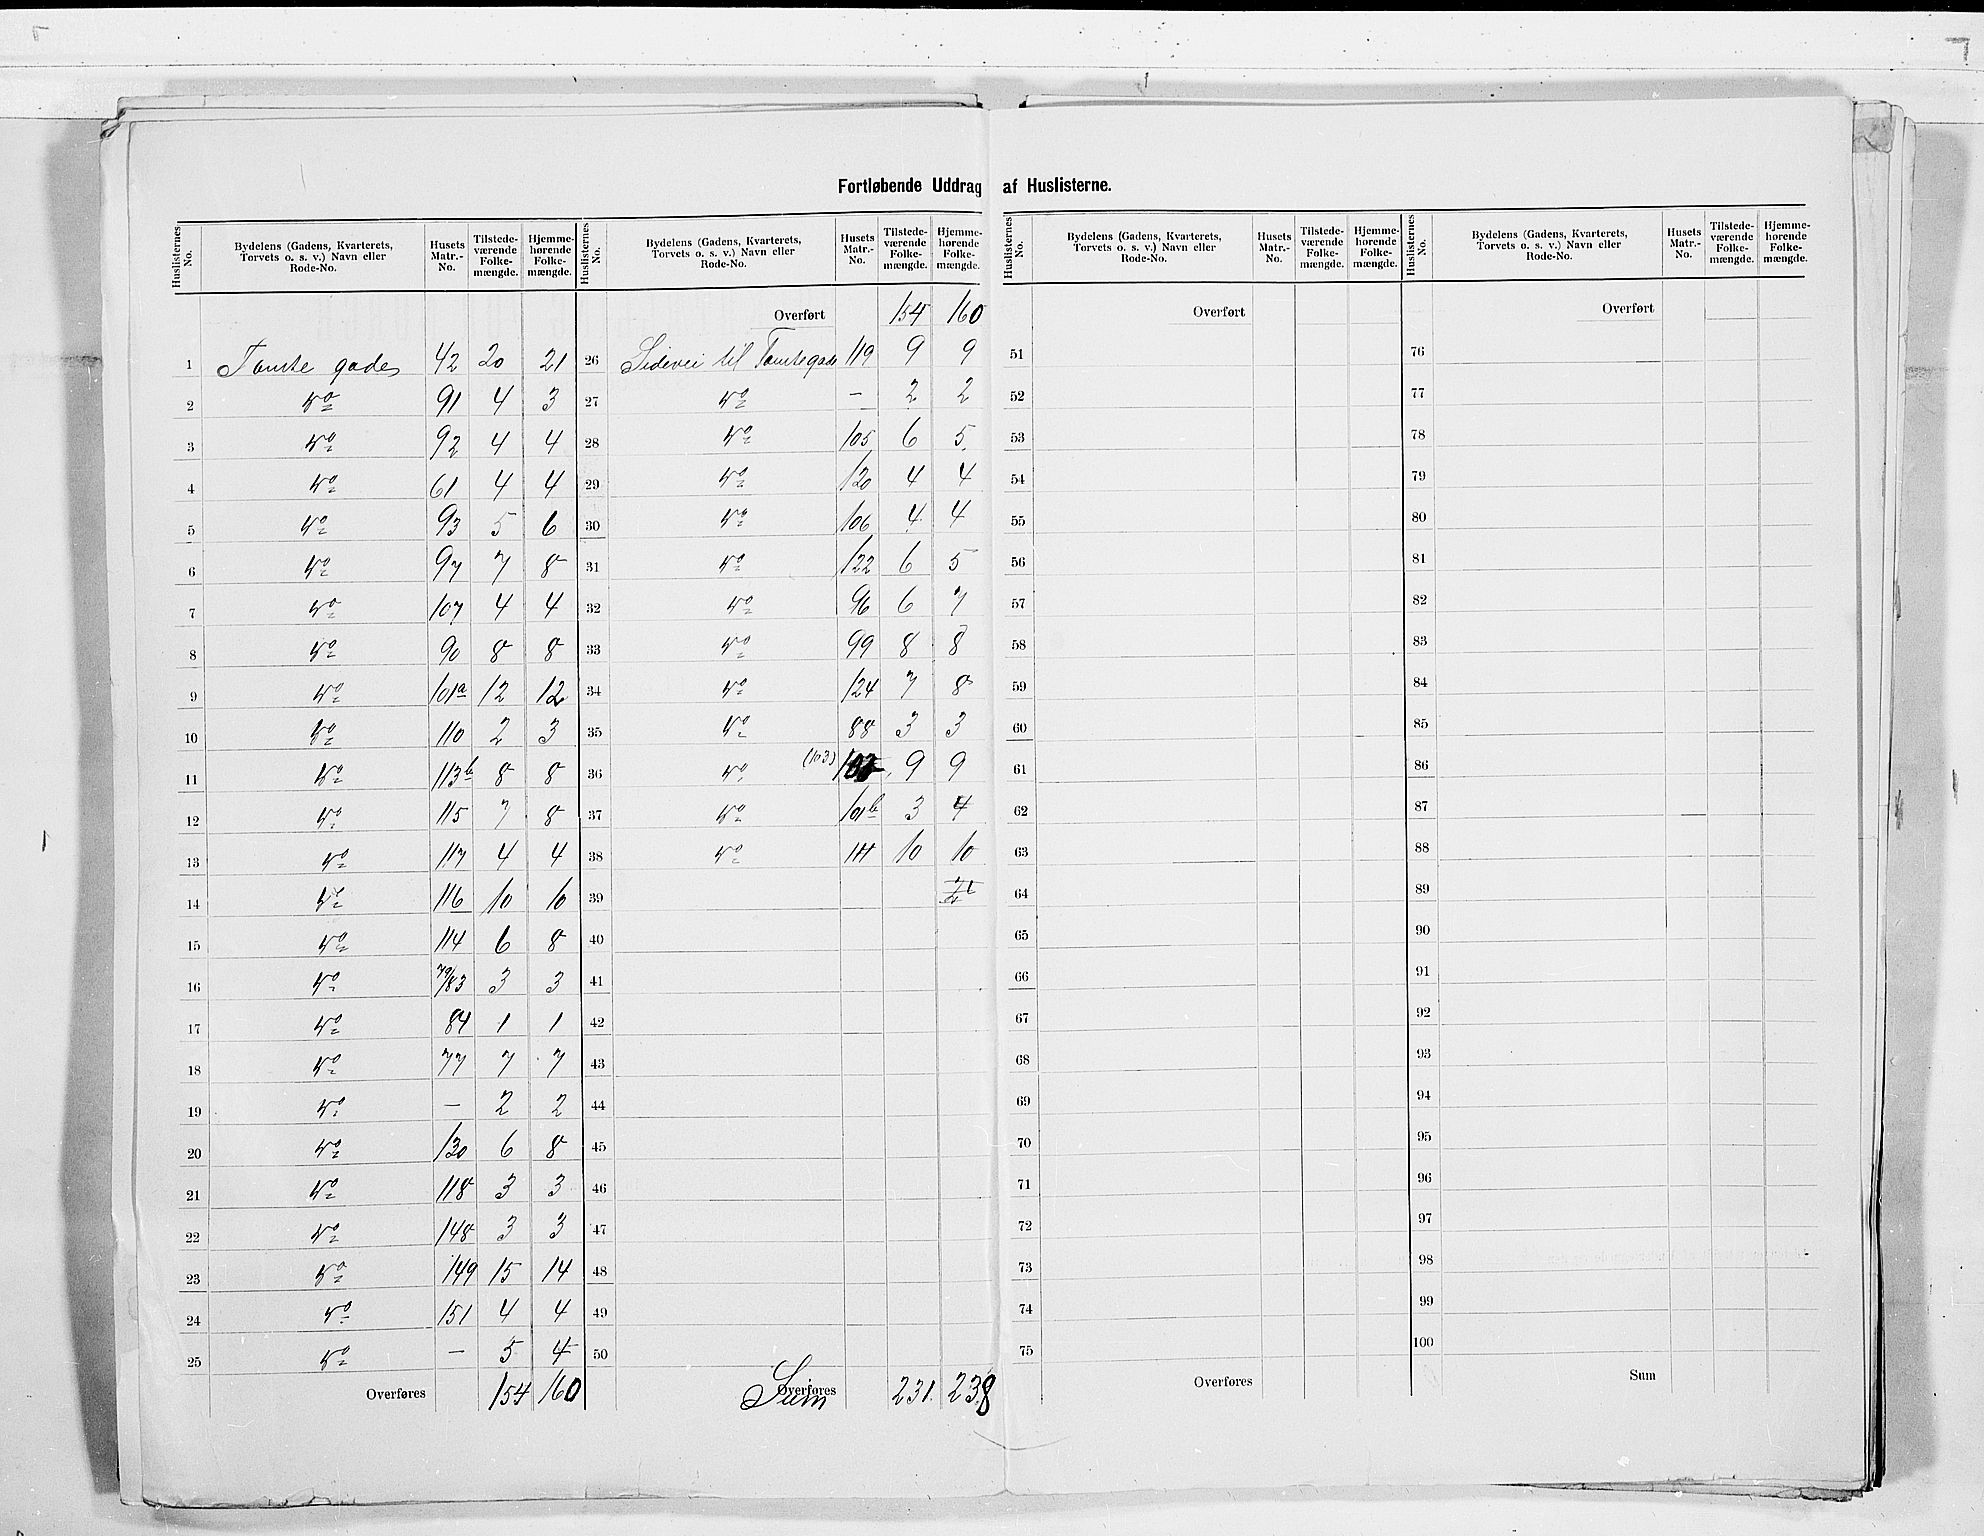 Fortløbende Uddrag af Huslisterne.
Huslisternes No. | Bydelens (Gadens, Kvarterets, Torvets o. s. v.) Navn eller Rode-No. | Husets Matr.-No. | Tilstedeværende Folkemængde. | Hjemmehørende Folkemængde.
1 Tomte gaden 42 20 21
2 do 91 4 3
3 do 92 4 4
4 do 61 4 4
5 do 93 5 6
6 do 97 7 8
7 do 107 4 4
8 do 90 8 8
9 do 101a 12 12
10 do 110 2 3
11 do 113b 8 8
12 do 115 7 8
13 do 117 4 4
14 do 116 10 10
15 do 114 6 8
16 do 79/83 3 3
17 do 84 1 1
18 do 77 7 7
19 do — 2 2
20 do 130 6 8
21 do 118 3 3
22 do 148 3 3
23 do 149 15 14
24 do 151 4 4
25 do — 5 4
Overføres 154 160
Huslisternes No. | Bydelens (Gadens, Kvarterets, Torvets o. s. v.) Navn eller Rode-No. | Husets Matr.-No. | Tilstedeværende Folkemængde. | Hjemmehørende Folkemængde.
Overført 154 160
26 Sidevei til Tomtegade 119 9 9
27 do — 2 2
28 do 105 6 5
29 do 120 4 4
30 do 106 4 4
31 do 122 6 5
32 do 96 6 7
33 do 99 8 8
34 do 124 7 8
35 do 88 3 3
36 do (103) 9 9
37 do 101b 3 4
38 do 111 10 10
39
40
41
42
43
44
45
46
47
48
49
50
Overføres
Sum 231. 238
Huslisternes No. | Bydelens (Gadens, Kvarterets, Torvets o. s. v.) Navn eller Rode-No. | Husets Matr.-No. | Tilstedeværende Folkemængde. | Hjemmehørende Folkemængde.
Overført
51
52
53
54
55
56
57
58
59
60
61
62
63
64
65
66
67
68
69
70
71
72
73
74
75
Overføres
Huslisternes No. | Bydelens (Gadens, Kvarterets, Torvets o. s. v.) Navn eller Rode-No. | Husets Matr.-No. | Tilstedeværende Folkemængde. | Hjemmehørende Folkemængde.
Overført
76
77
78
79
80
81
82
83
84
85
86
87
88
89
90
91
92
93
94
95
96
97
98
99
100
Sum